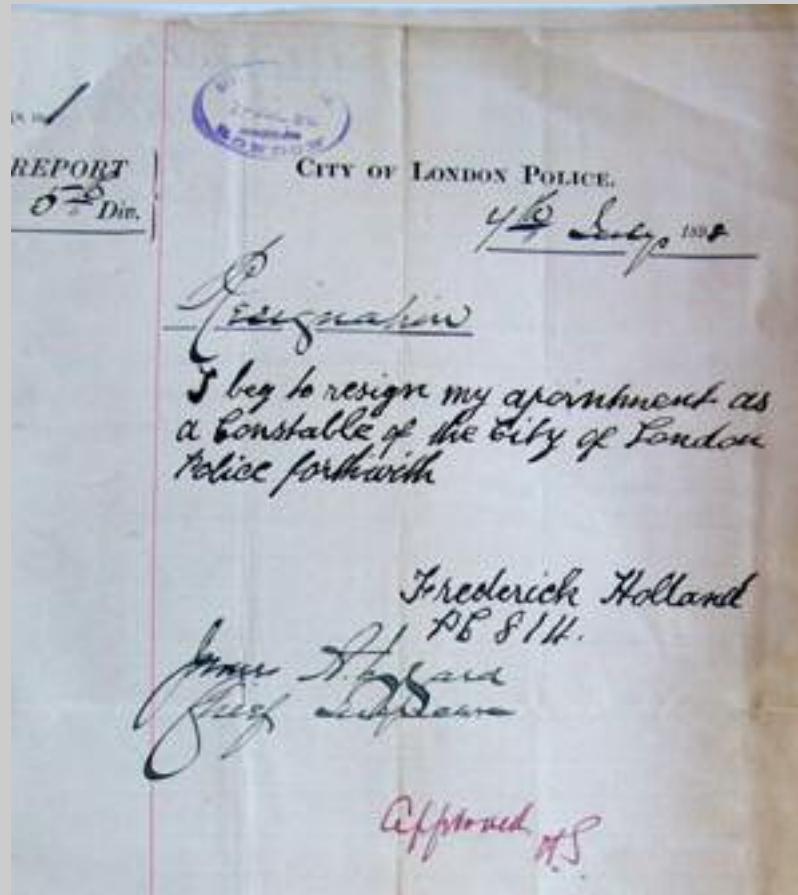 REPORT
5th Div.
CITY OF LONDON POLICE.
4th July 1898
Resignation
I beg to resign my apointment as
a Constable of the City of London
Police forthwith
Frederick Holland
PC 811.
James
Chief Inspector
Approved